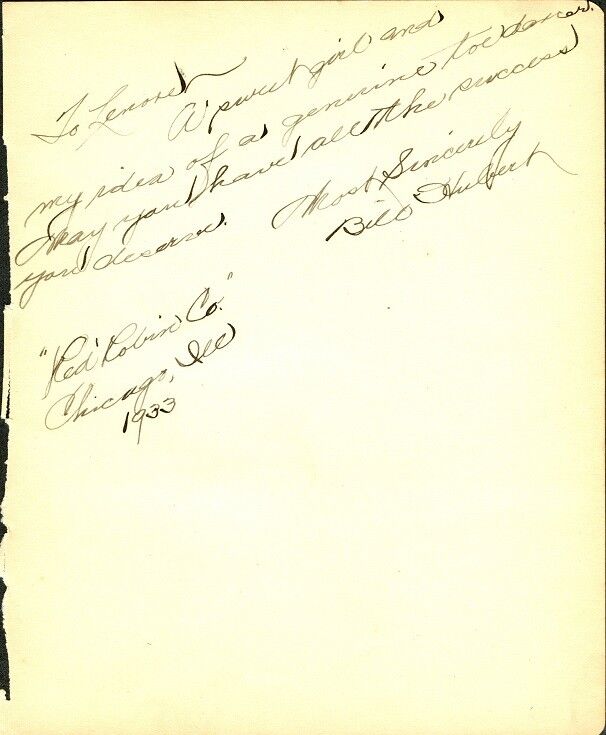 To Lenore
A sweet girl and
my idea of a genuine toe dancer.
May you have all the success
you deserve. Most Sincerely
Bill Hubert
"Red Robin Co."
Chicago, Ill
1933